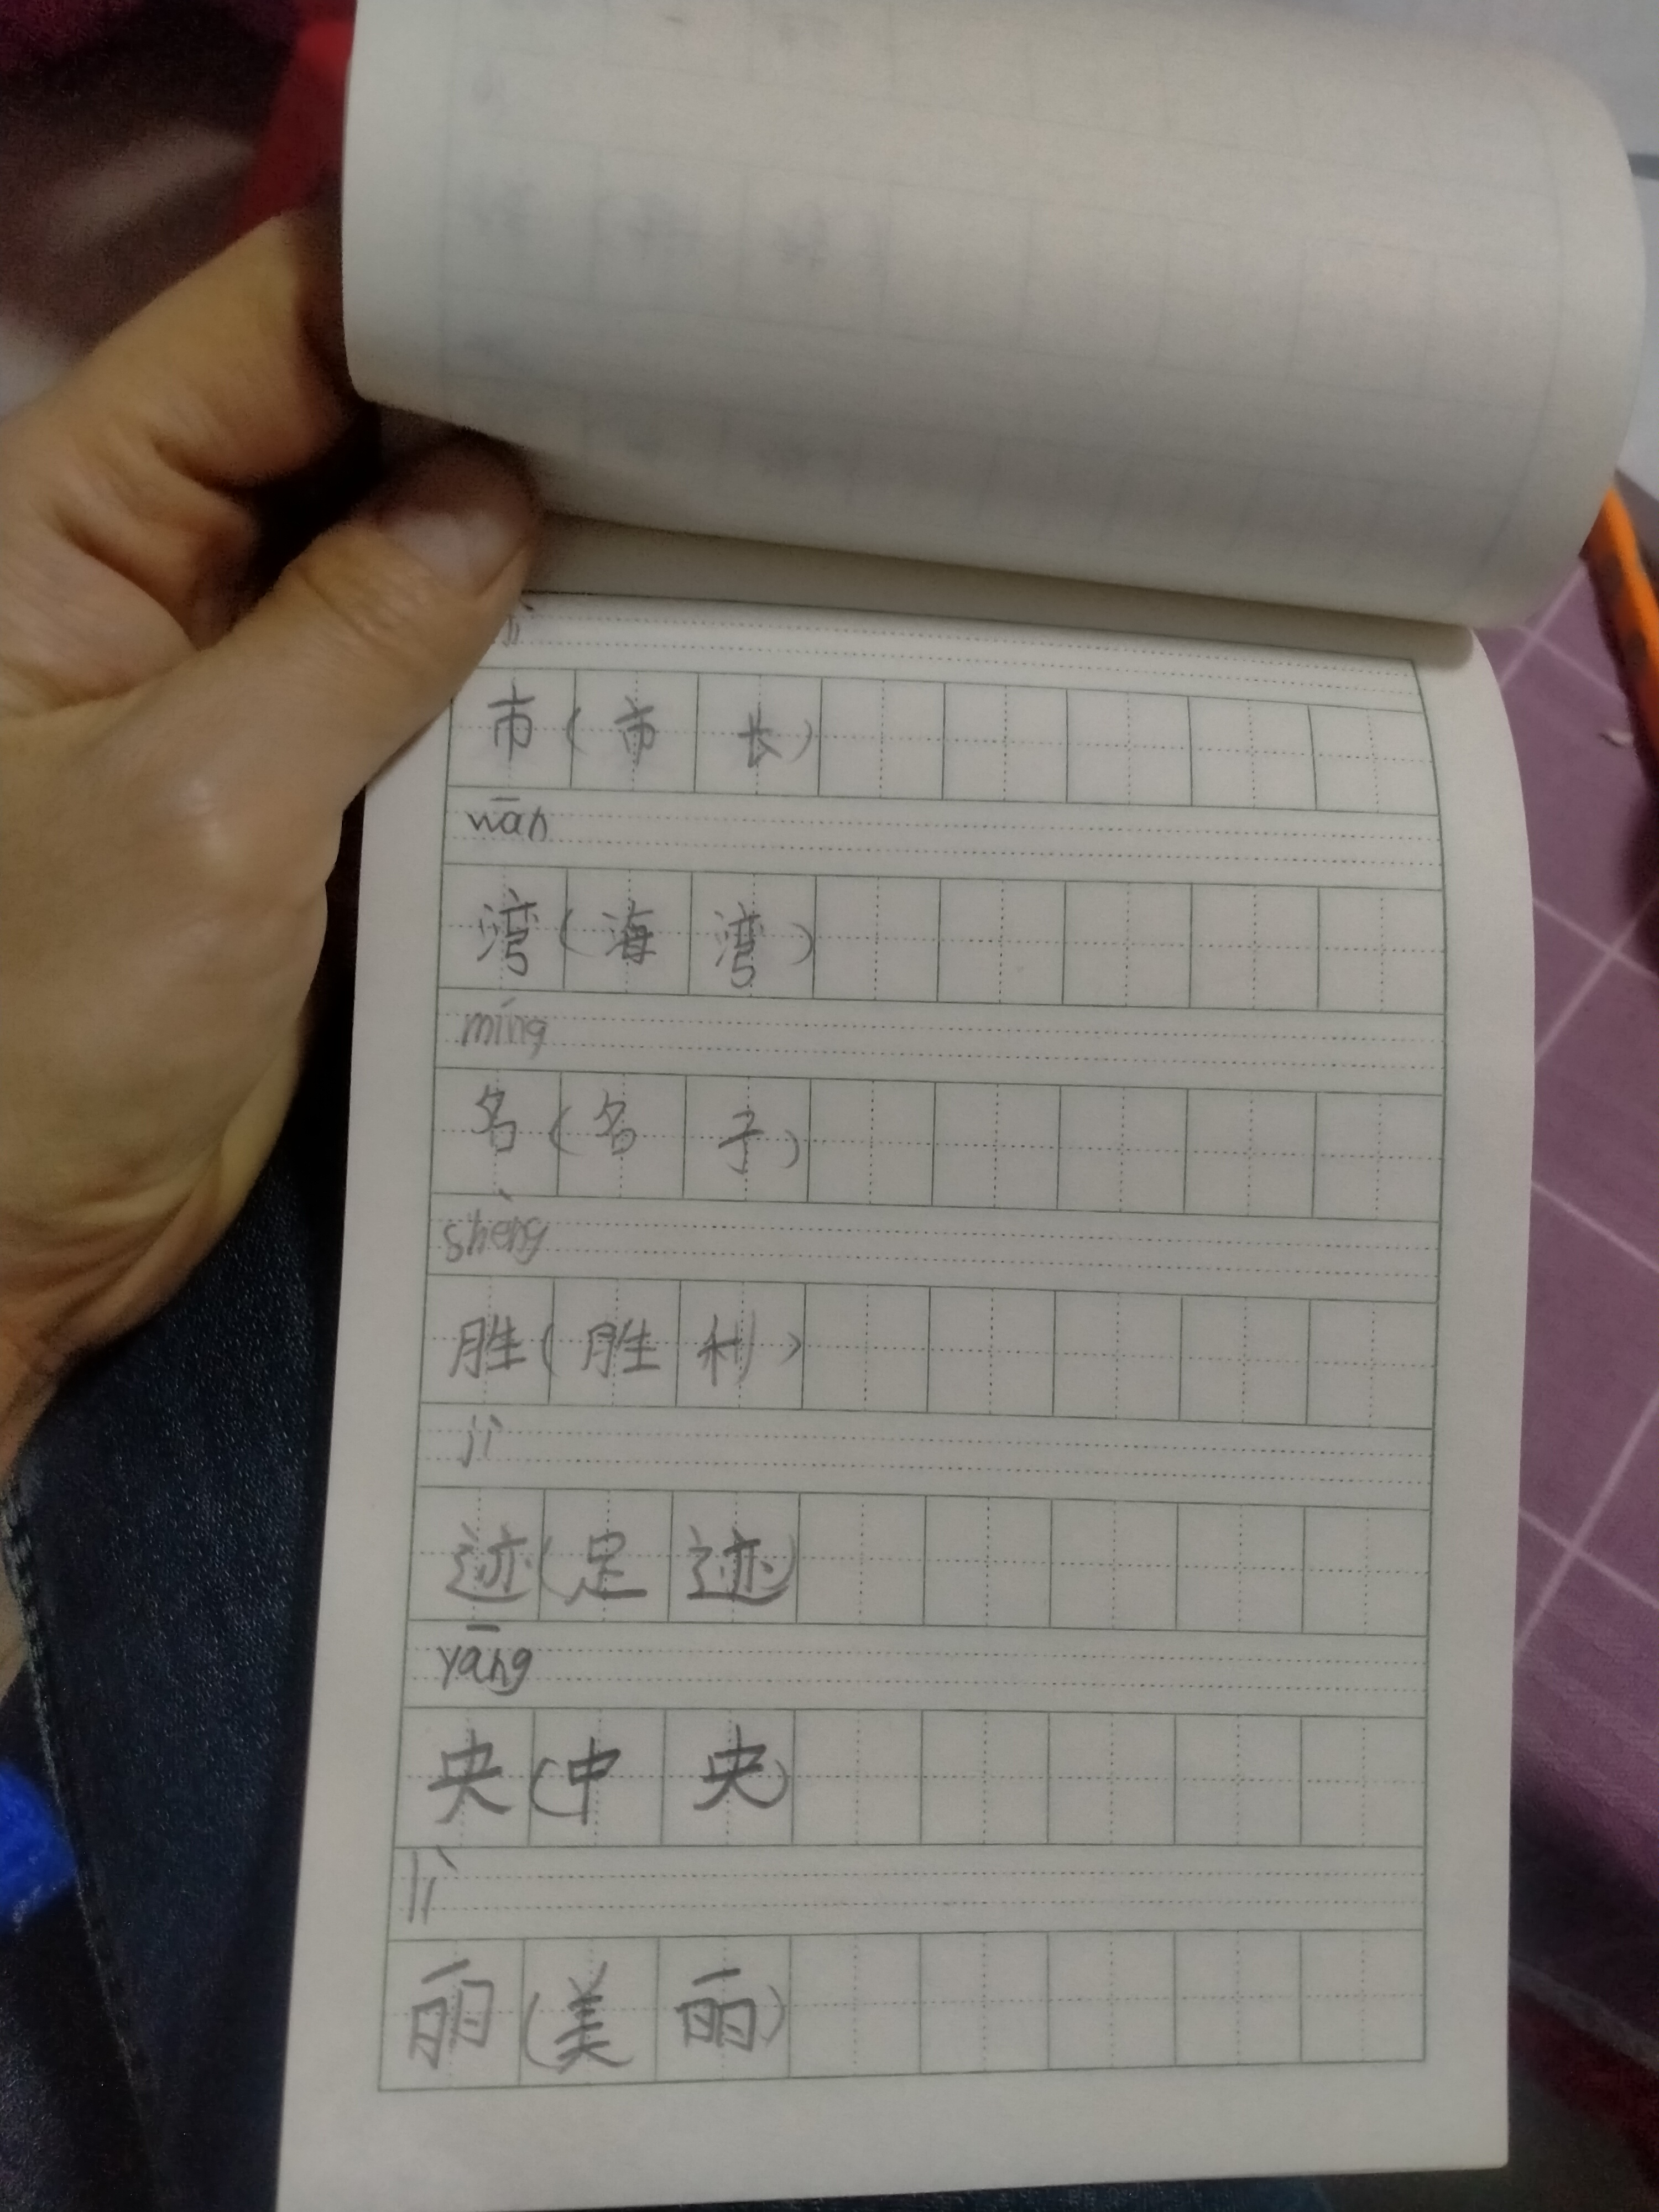 市(市长)
wān
湾(海湾)
míng
名(名子)
shèng
胜(胜利)
jì
迹(足迹)
yāng
央(中央)
lì
丽(美丽)